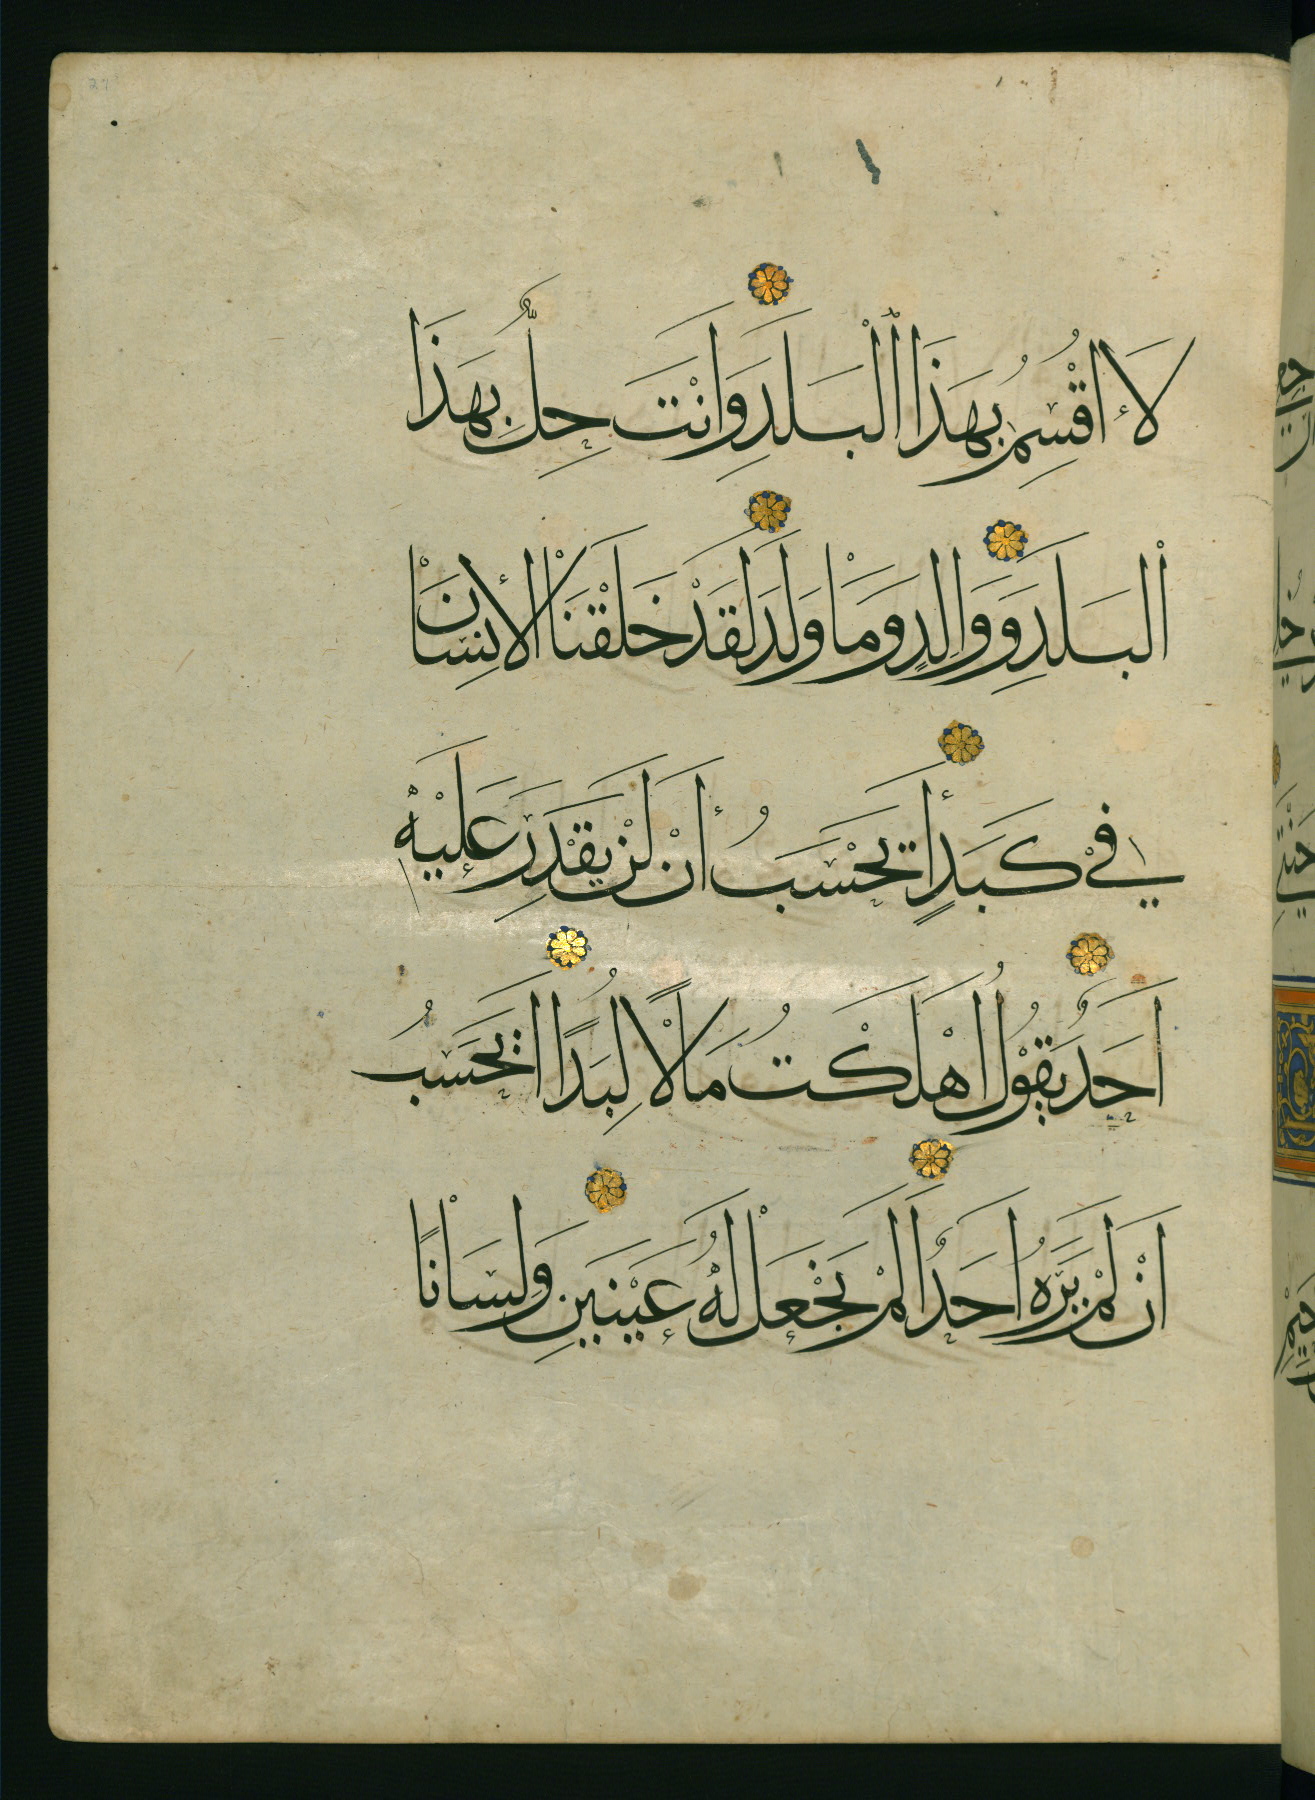 لَا أُقْسِمُ بِهَذَا الْبَلَدِ وَاَنْتَ حِلٌّ بِهَذَا
الْبَلَدِ وَوَالِدٍ وَمَا وَلَدَ لَقَدْ خَلَقْنَا الْأِنْسَانَ
فِيْ كَبَدٍ أَتَحْسَبُ أَنْ لَنْ يَقْدَرَ عَلَيْهِ
اَحَدٌ يَقُوْلُ اَهْلَكْتُ مَالًا لُبَدًا اَتَحْسَبُ
اَنْ لَمْ يَرَهُ اَحَدٌ اَلَمْ نَجْعَلْ لَهُ عَيْنَيَنِ وَلِسَانًا
27